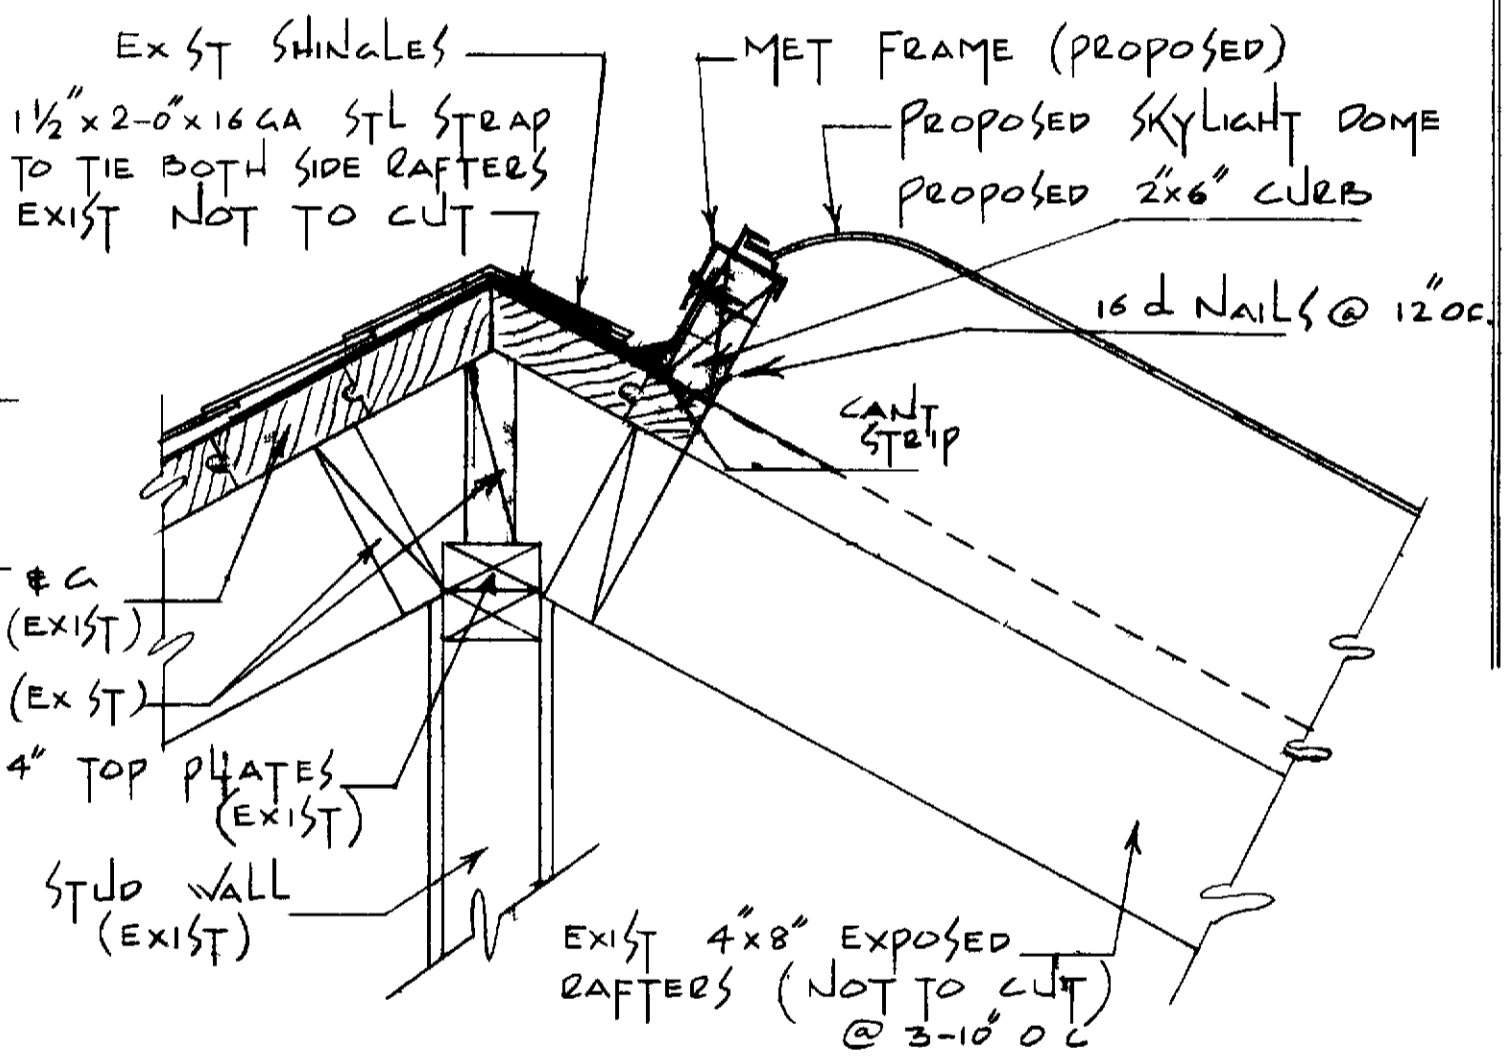 EXIST SHINGLES
1½"x2-0"x16 GA STL STRAP
TO TIE BOTH SIDE RAFTERS
EXIST NOT TO CUT
MET FRAME (PROPOSED)
PROPOSED SKYLIGHT DOME
PROPOSED 2"x6" CURB
16 d NAILS @ 12" OC.
CANT
STRIP
& G
(EXIST)
(EXIST)
4" TOP PLATES
(EXIST)
STUD WALL
(EXIST)
EXIST 4"x8" EXPOSED
RAFTERS (NOT TO CUT)
@ 3-10" O C